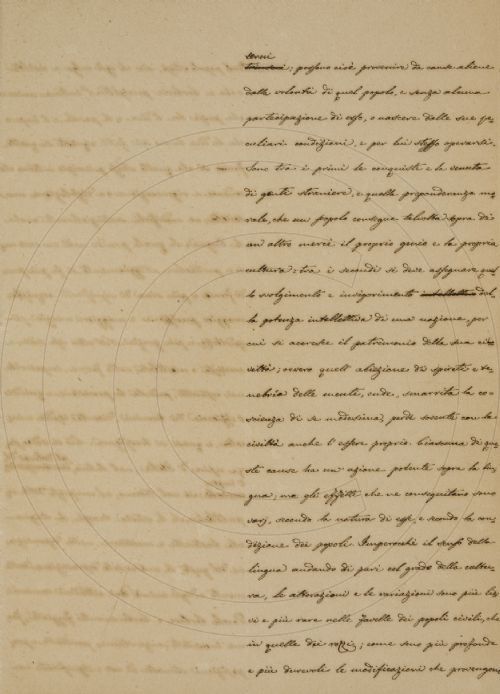 senci
; possono cioè provenire da cause aliene
dalla volontà di quel popolo, e senza alcuna
partecipazione di esso, o nascere dalle sue pe-
culiari condizioni, e per lui stesso operarsi.
Sono tra i primi le conquiste e la venuta
di genti straniere, e quella preponderanza mo-
rale, che un popolo consegue talvolta sopra di
un altro mercè il proprio genio e la propria
cultura: tra i secondi si deve assegnare quel
lo svolgimento e invigorimento intellettivo del
la potenza intellettiva di una nazione, per
cui si accresce il patrimonio della sua civ
viltà; ovvero quell' abiezione di spirito e te-
nebria della mente, onde, smarrita la co-
scienza di se medesima, perde sovente con la
civiltà anche l' essere proprio. Ciascuna di que
ste cause ha un' azione potente sopra la lin
gua; ma gli effetti che ne conseguitano sono
varj, secondo la natura di esse, e secondo la con
dizione dei popoli. Imperocchè il senso della
lingua andando di pari col grado della coltu-
ra, le alterazioni e le variazioni sono più lie
vi e più rare nelle favelle dei popoli civili, che
in quelle dei rozzi; come sono più profonde
e più durevoli le modificazioni che provengono